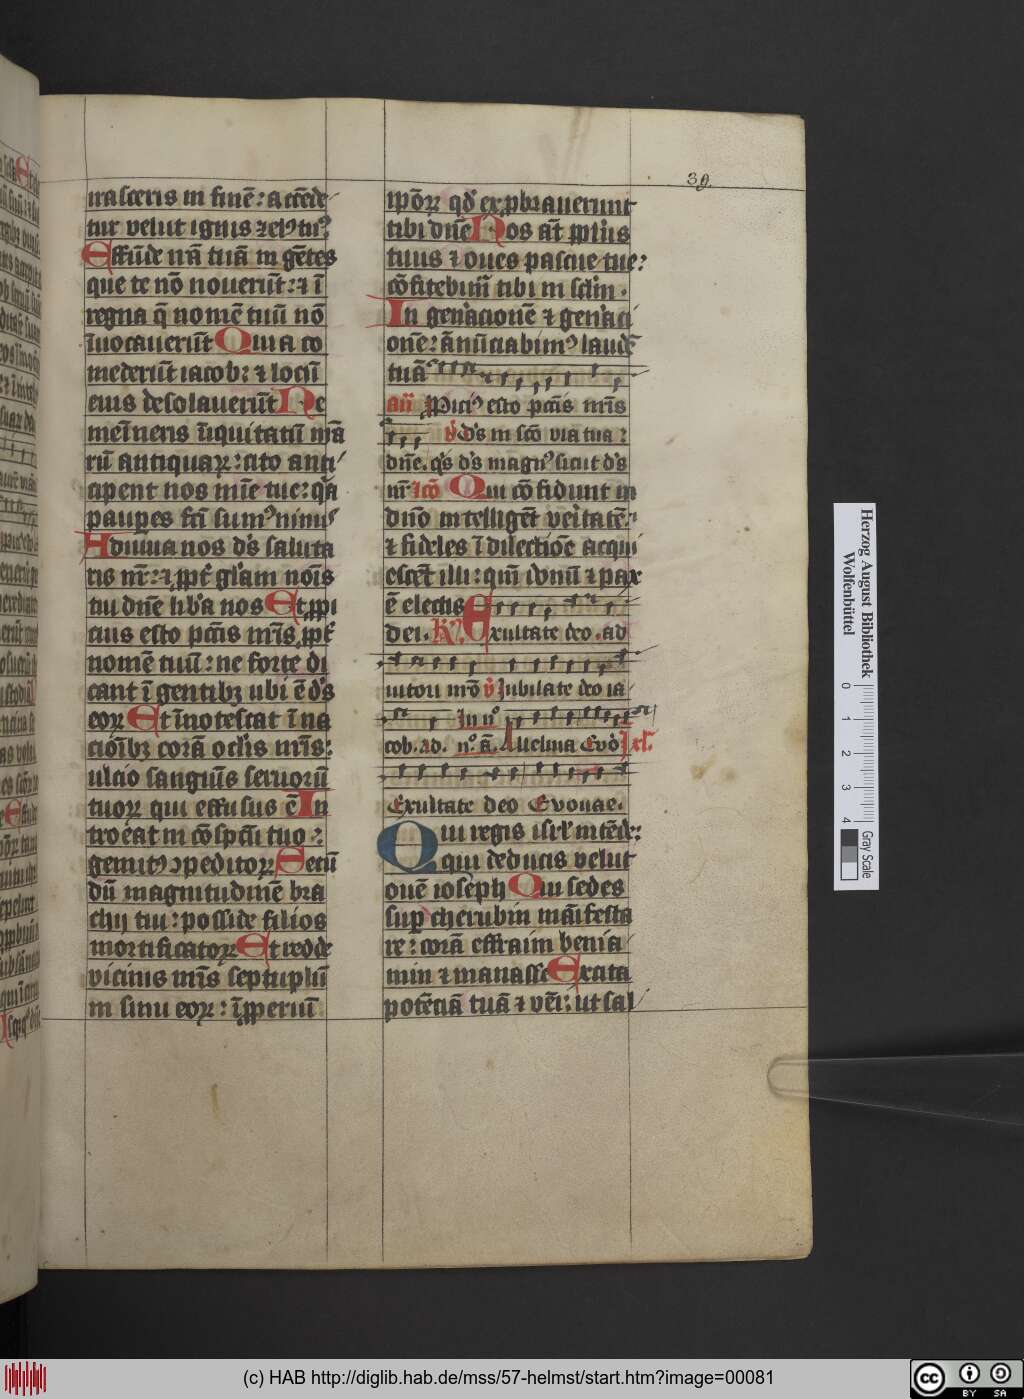 irasceris in finē: accēde
tur velut ignis zelꝰ tuꝰ?
Effūde irā tuā in gētes
que te nō noverūt: ⁊ ī
regna q̄ nomē tuū nō
īvocaverūt Quia co
mederūt iacob: ⁊ locū
eius desolaverūt Ne
meīneris īiquitatū nrā
rū antiquaꝝ: cito anti
cipent nos mīe tue: qͥa
paupes fcī sumꝰ nimis
Adiuva nos ds saluta
ris nr̄: ⁊ ꝓpt̓ glām nois
tui dnē libͣa nos Et ꝓpi
cius esto pctīs nrīs ꝓpt̓
nomē tuū: ne forte di
cant ī gentibꝫ ubi ē ds
eoꝝ Et īnotescat ī na
ciōībꝫ corā oclis nrīs:
ulcio sanguīs servorū
tuoꝝ qui effusus ē In
troeat in cōspcū tuo:
gemitꝰ ꝯpeditoꝝ Secū
dū magnitudinē bra
chij tui: posside filios
mortificatoꝝ Et redde
vicinis nrīs septuplū
in sinu eoꝝ: īꝓperiū
39.
ipōꝝ qd exꝓbraverunt
tibi dnē Nos at̄ pplus
tuus ⁊ oves pascue tue:
cōfitebim̄ tibi in sclm.
In genͣacionē ⁊ genͣaci
onē: ānūciabimꝰ laudē
tuā
an̄ Ꝓpiciꝰ esto pctīs nrīs
v̓ Ds in scō via tua:
dnē. qͥs ds magnꝰ sicut ds
nr̄ Scō Qui cōfidunt in
dnō intelligēt veritatē:
⁊ fideles ī dilectiōe acqui
escēt illi: qm̄ donū ⁊ pax
ē electis
dei. Exultate deo. ad
iutori nrō v̓ Jubilate deo ia
In nᵒ
cob. ad. nᵒ. ā. Alleluia Evo
Exultate deo Evovae.
Qui regis isrl̓ intēde:
qui deducis velut
ovē ioseph Qui sedes
sup cherubin māifesta
re: corā effraim benia
min ⁊ manasse Excita
potēciā tuā ⁊ vēi: ut sal
Herzog August Bibliothek
Wolfenbüttel
0 1 2 3 4
Gray Scale
(c) HAB http://diglib.hab.de/mss/57-helmst/start.htm?image=00081
cc BY SA